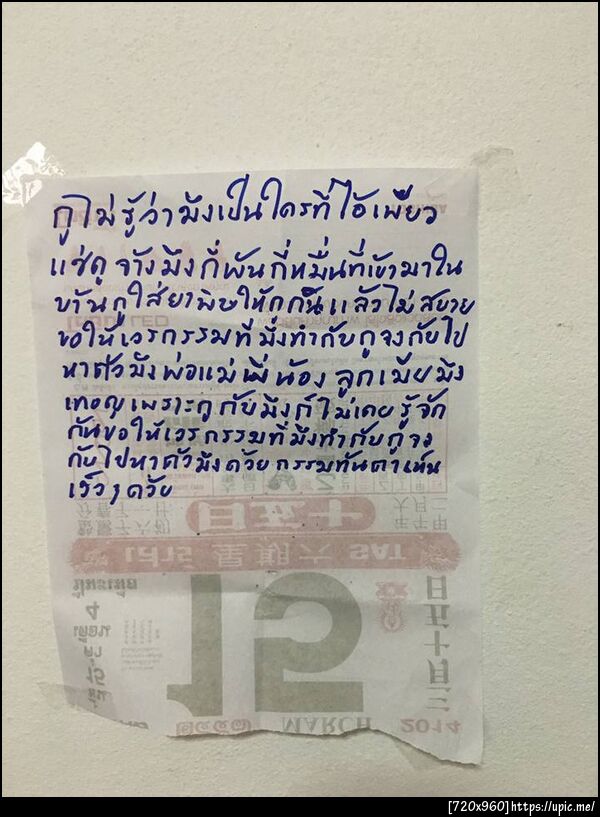 กูไม่รู้ว่ามึงเป็นใครที่ไอ้เพียว
แซ่ดู จ้างมึงกี่พันกี่หมื่นที่เข้ามาใน
บ้านกูใส่ยาพิษให้กูกินแล้วไม่สบาย
ขอให้เวรกรรมที่มึงทำกับกูจงกับไป
หาตัวมึงพ่อแม่พี่น้อง ลูกเมียมึง
เทอญเพราะกูกับมึงก็ไม่เคยรู้จัก
กันขอให้เวรกรรมที่มึงทำกับกูจง
กับไปหาตัวมึงด้วยกรรมทันตาเห็น
เร็วๆด้วย
十五日
เสาร์ 星期六 SAT
15
二月十五日
๒๕๕๗ MARCH 2014
[720x960]https://upic.me/